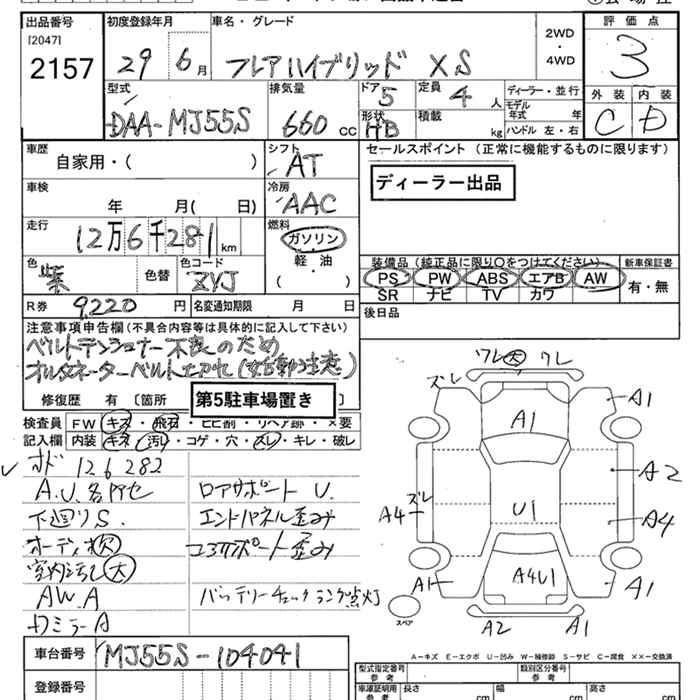 出品番号 初度登録年月 車名・グレード 評価点
[2047]
2157 29 6月 フレアハイブリッド XS 2WD・4WD 3
型式 排気量 ドア 5 定員 4人 ディーラー・並行 外装 内装
DAA-MJ55S 660cc 形状 HB 積載 kg モデル年式 年 C D
ハンドル 左・右
車歴 シフト セールスポイント(正常に機能するものに限ります)
自家用・( ) AT
ディーラー出品
車検 冷房
年 月( 日) AAC
走行 燃料
12万6千281km ガソリン
軽・油
( )
色 色替 色コード 装備品(純正品に限り○をつけてください) 新車保証書
紫 ZVJ PS PW ABS エアB AW 有・無
SR ナビ TV カワ
R券 9,220円 名変通知期限 月 日
後日品
注意事項申告欄(不具合内容等は具体的に記入して下さい)
ベルトテンショナー不良のため
オルタネーターベルト (始動注意)
修復歴 有 〔箇所
第5駐車場置き
検査員 FW キズ・飛石・ヒビ割・リペア跡・×要
記入欄 内装 キズ・汚レ・コゲ・穴・スレ・キレ・破レ
126282
A.U.各所 ロアサポート U.
下廻りS. エンドパネル歪み
オーディオ欠 コアサポート歪み
室内汚し大
AW.A バッテリーチェックランプ点灯
ワレ大 ワレ
ズレ
A1
A1
A2
ズレ
A4
U1
A4
A1
A4U1
A1
スペア
A2 A1
A-キズ E-エクボ U-凹み W-補修跡 S-サビ C-腐食 ××-交換済
車台番号 MJ55S-104041
登録番号
型式指定番号 参考 類別区分番号 参考
車庫証明用 参考 長さ cm 幅 cm 高さ cm